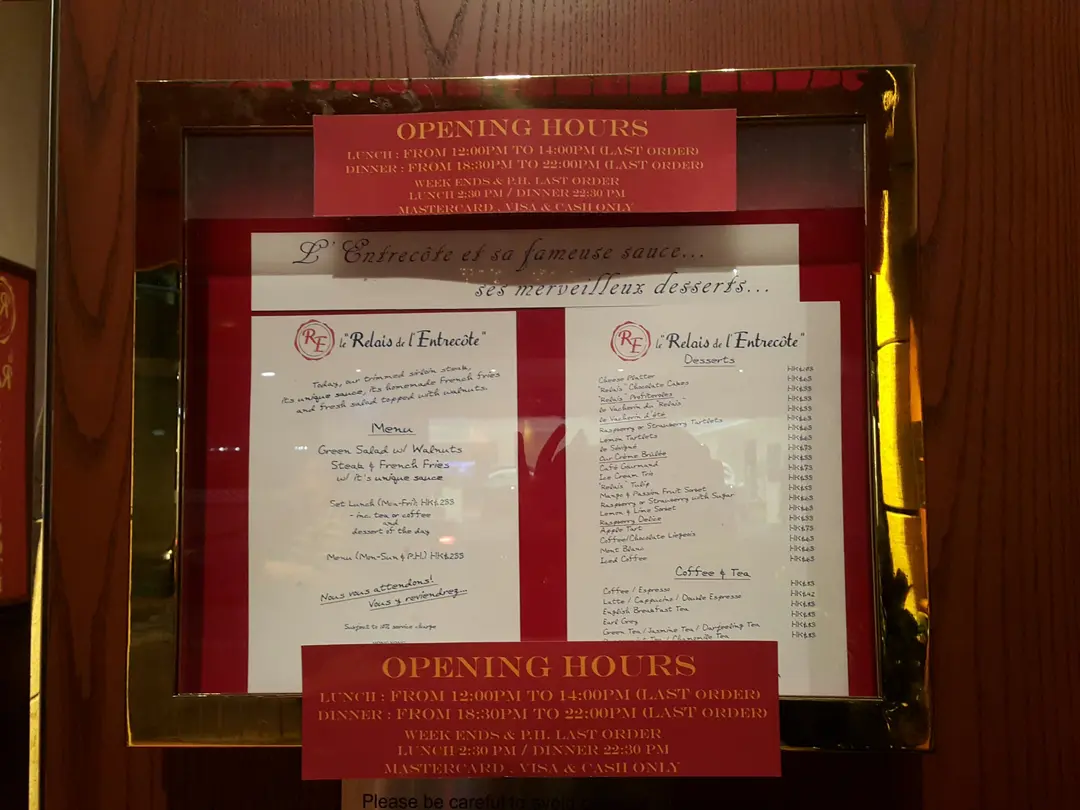 OPENING HOURS
LUNCH : FROM 12:00PM TO 14:00PM (LAST ORDER)
DINNER : FROM 18:30PM TO 22:00PM (LAST ORDER)
WEEK ENDS & P.H. LAST ORDER
LUNCH 2:30 PM / DINNER 22:30 PM
MASTERCARD , VISA & CASH ONLY
L'Entrecôte et sa fameuse sauce...
ses merveilleux desserts...
RE le "Relais de l'Entrecôte"
Today, our trimmed sirloin steak,
its unique sauce, its homemade French fries
and fresh salad topped with walnuts.
Menu
Green Salad w/ Walnuts
Steak & French Fries
w/ it's unique sauce
Set Lunch (Mon-Fri): HK$255
- inc. tea or coffee
and
dessert of the day
Menu (Mon-Sun & P.H.) HK$255
Nous vous attendons!
Vous y reviendrez...
Subject to 10% service charge
RE le "Relais de l'Entrecôte"
Desserts
Cheese Platter
"Relais" Chocolate Cakes
"Relais" Profiteroles
le Vacherin du "Relais"
le Vacherin d'été
Raspberry or Strawberry Tartlets
Lemon Tartlets
le Sévigné
Our Crème Brûlée
Café Gourmand
Ice Cream Trio
"Relais" Tulip
Mango & Passion Fruit Sorbet
Raspberry or Strawberry with Sugar
Lemon & Lime Sorbet
Raspberry Delice
Apple Tart
Coffee/Chocolate Liégeois
Mont Blanc
Iced Coffee
Coffee & Tea
Coffee / Espresso
Latte / Cappucino / Double Espresso
English Breakfast Tea
Earl Grey
Green Tea / Jasmine Tea / Darjeeling Tea
OPENING HOURS
LUNCH : FROM 12:00PM TO 14:00PM (LAST ORDER)
DINNER : FROM 18:30PM TO 22:00PM (LAST ORDER)
WEEK ENDS & P.H. LAST ORDER
LUNCH 2:30 PM / DINNER 22:30 PM
MASTERCARD , VISA & CASH ONLY
Please be careful to avoid